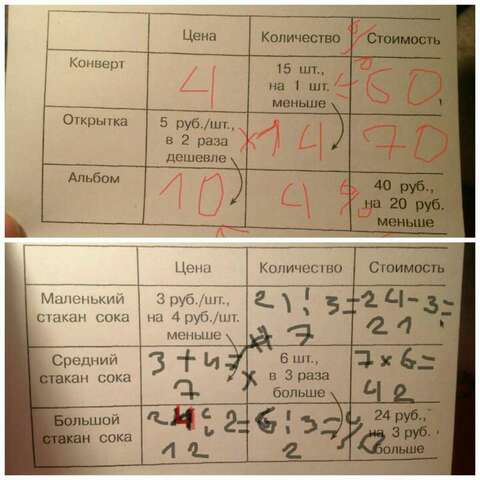 Цена Количество Стоимость
Конверт 4 15 шт., на 1 шт. меньше 60
Открытка 5 руб./шт., в 2 раза дешевле 14 70
Альбом 10 4 40 руб., на 20 руб. меньше
Цена Количество Стоимость
Маленький стакан сока 3 руб./шт., на 4 руб./шт. меньше 21:3= 7 24-3= 21
Средний стакан сока 3+4= 7 6 шт., в 3 раза больше 7x6= 42
Большой стакан сока 24:2= 12 6:3= 2 24 руб., на 3 руб. больше